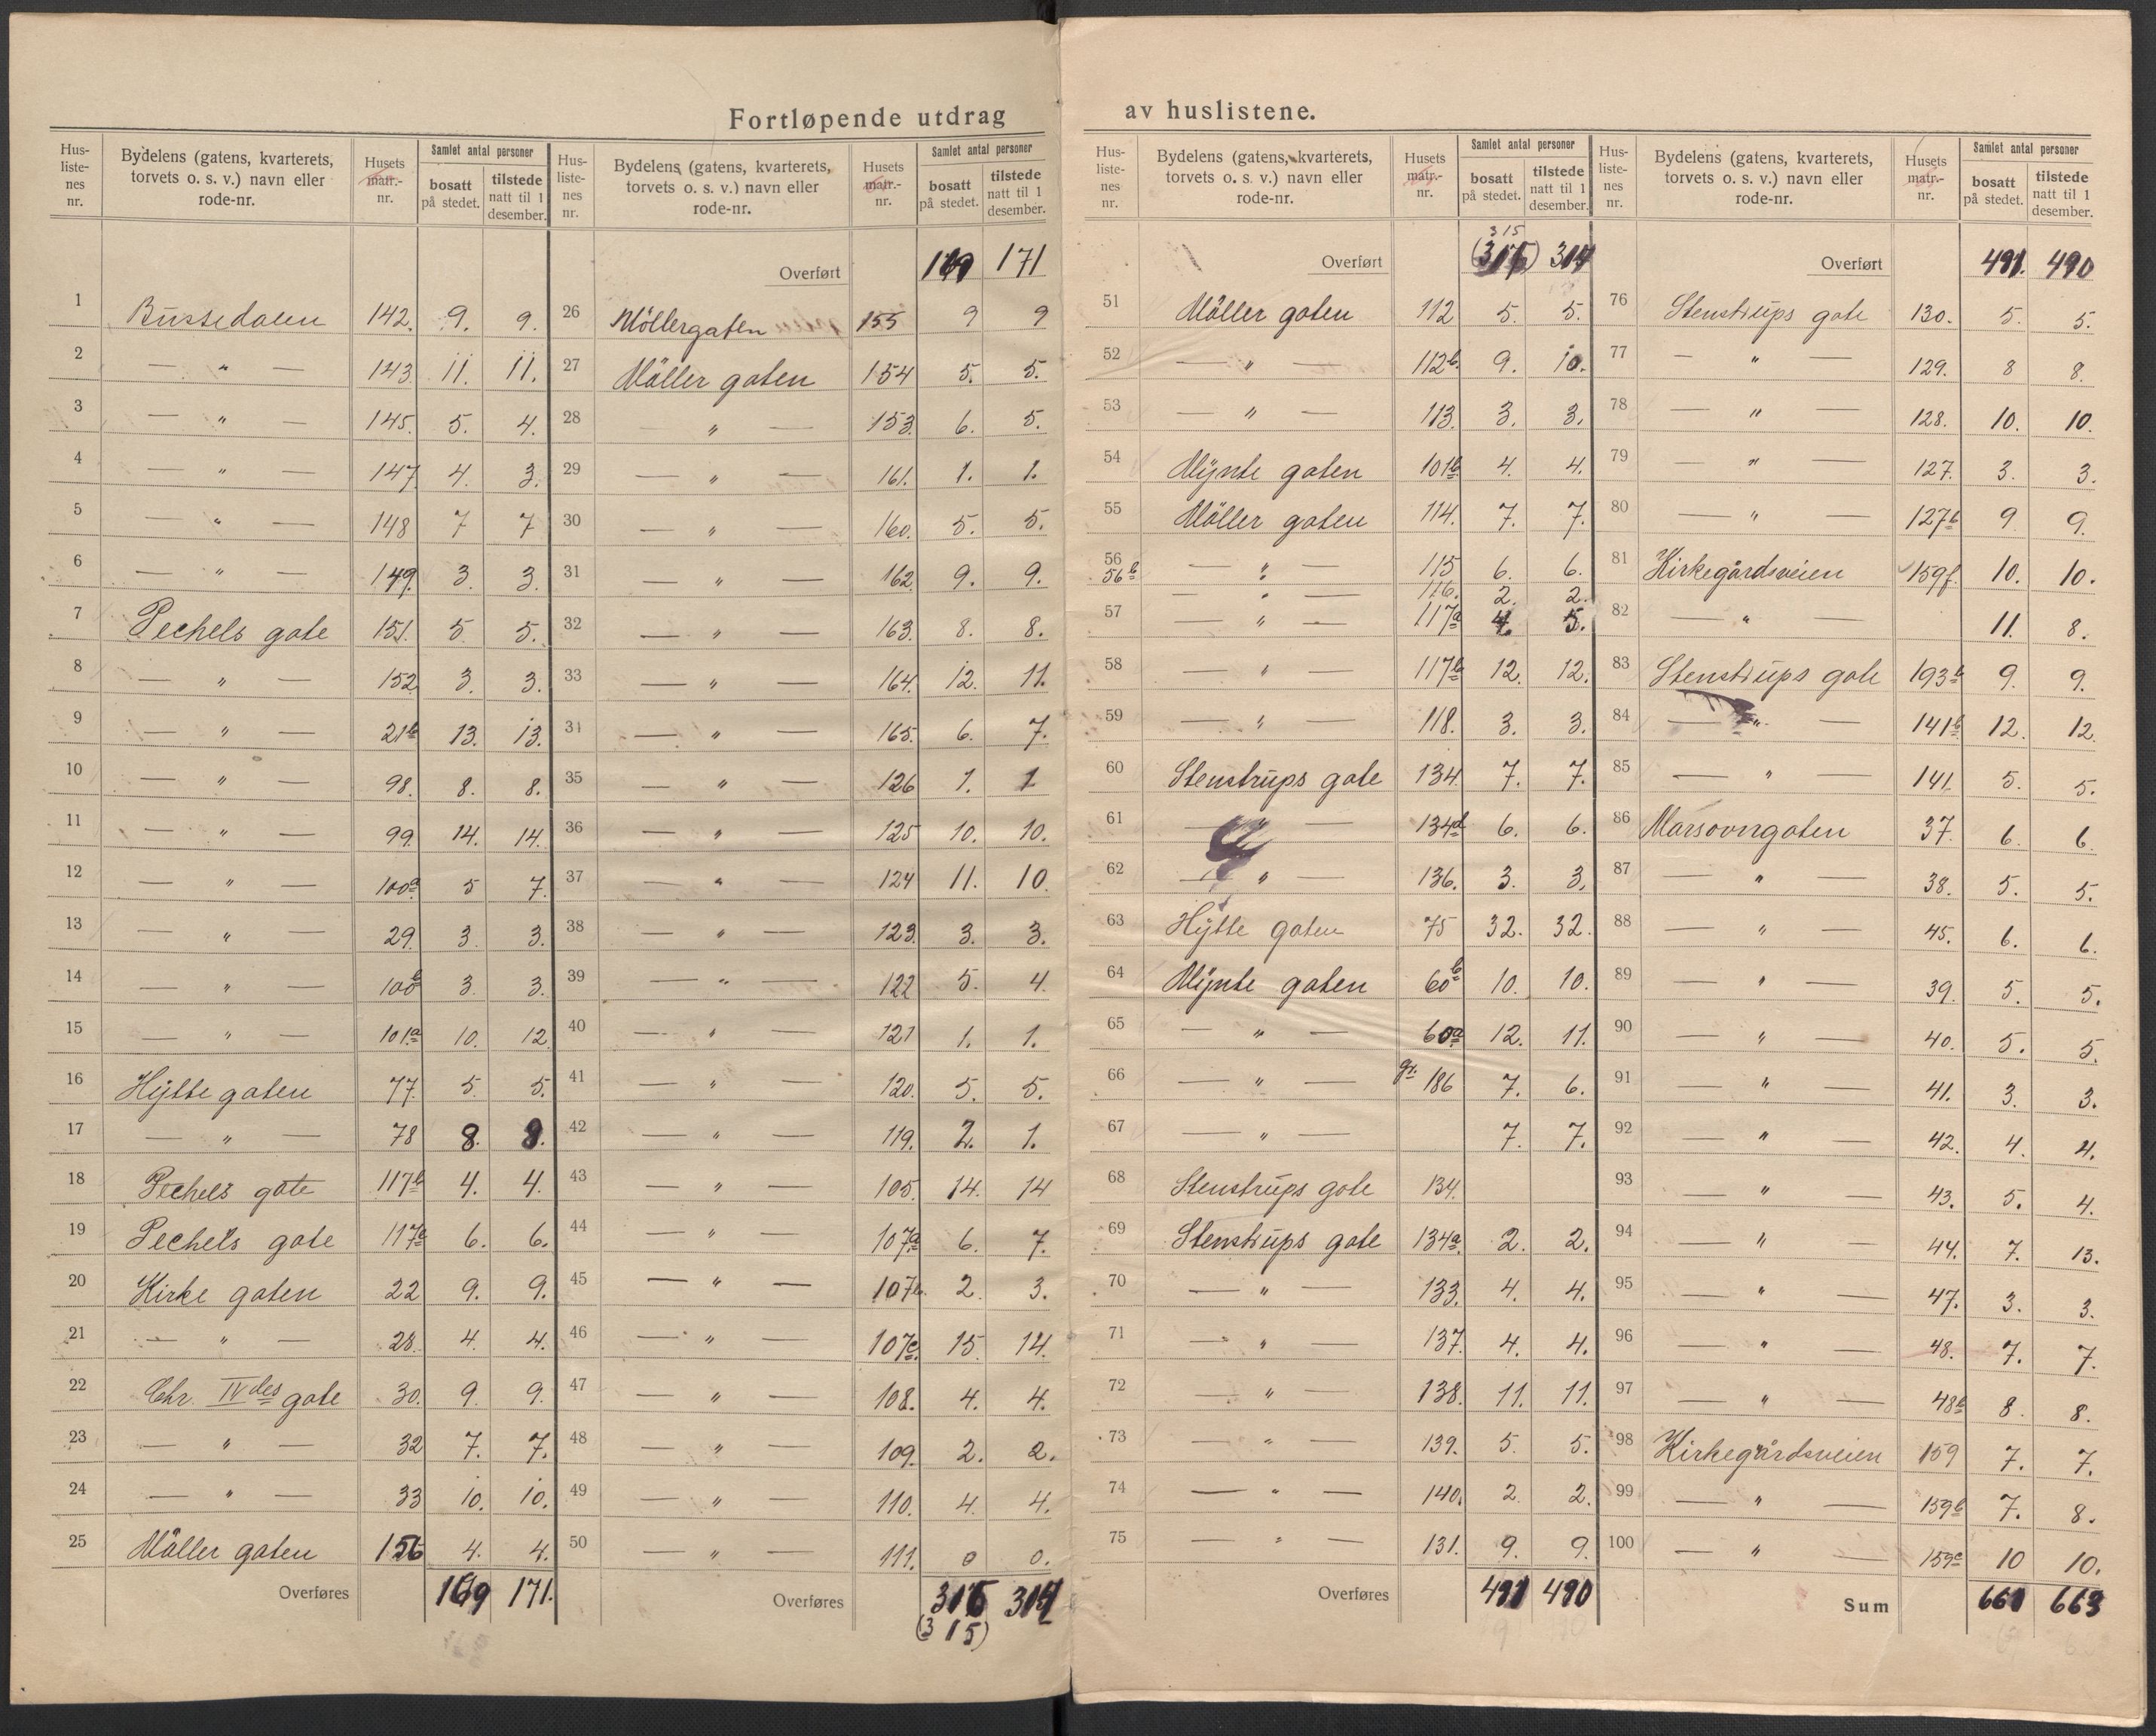 Fortløpende utdrag av huslistene.
Hus-liste-nes nr. Bydelens (gatens, kvarterets, torvets o. s. v.) navn eller rode-nr. Husets matr.-nr. Samlet antal personer bosatt på stedet. tilstede natt til 1 desember.
1 Bussedalen 142. 9. 9.
2 — " — 143 11. 11.
3 — " — 145. 5. 4.
4 — " — 147. 4. 3.
5 — " — 148 7 7
6 — " — 149. 3. 3.
7 Pechels gate 151. 5 5.
8 — " — 152 3. 3.
9 — " — 21b 13. 13.
10 — " — 98. 8. 8.
11 — " — 99. 14. 14.
12 — " — 100a 5 7.
13 — " — 29. 3 3.
14 — " — 100b 3. 3.
15 — " — 101a 10. 12
16 Hyttegaten 77. 5 5.
17 — " — 78 8. 8.
18 Pechels gate 117b 4. 4.
19 Pechels gate 117a 6. 6.
20 Kirke gaten 22 9. 9.
21 — " — 28. 4. 4.
22 Chr. IVdes gate 30. 9. 9.
23 — " — 32 7. 7.
24 — " — 33 10. 10.
25 Möller gaten 156 4. 4.
Overføres 169 171.
Hus-liste-nes nr. Bydelens (gatens, kvarterets, torvets o. s. v.) navn eller rode-nr. Husets matr.-nr. Samlet antal personer bosatt på stedet. tilstede natt til 1 desember.
Overført 169 171
26 Möllergaten 155 9 9
27 Möller gaten 154 5. 5.
28 — " — 153 6. 5.
29 — " — 161. 1. 1.
30 — " — 160. 5. 5.
31 — " — 162 9. 9.
32 — " — 163. 8. 8.
33 — " — 164. 12. 11.
34 — " — 165. 6. 7.
35 — " — 126 1. 1
36 — " — 125 10. 10.
37 — " — 124 11. 10
38 — " — 123. 3. 3.
39 — " — 122 5. 4
40 — " — 121 1. 1.
41 — " — 120. 5. 5.
42 — " — 119. 2. 1.
43 — " — 105. 14. 14
44 — " — 107a 6. 7.
45 — " — 107b. 2. 3.
46 — " — 107c 15 14.
47 — " — 108. 4. 4.
48 — " — 109. 2. 2.
49 — " — 110. 4 4.
50 — " — 111. 0 0.
Overføres 316 314
(315)
Hus-liste-nes nr. Bydelens (gatens, kvarterets, torvets o. s. v.) navn eller rode-nr. Husets matr.-nr. Samlet antal personer bosatt på stedet. tilstede natt til 1 desember.
315
Overført (316) 314
51 Möller gaten 112 5. 5.
52 — " — 112b. 9. 10.
53 — " — 113. 3. 3.
54 Mynte gaten 101b 4. 4.
55 Möller gaten 114. 7. 7.
56 — " — 115 6. 6.
56b — " — 116. 2. 2.
57 — " — 117a 4. 5.
58 — " — 117b 12. 12.
59 — " — 118. 3. 3.
60 Stenstrups gate 134 7. 7.
61 — " — 134d 6. 6.
62 — " — 136. 3. 3.
63 Hytte gaten 75 32. 32.
64 Mynte gaten 60b 10. 10.
65 — " — 60a 12. 11.
66 — " — gr. 186 7. 6.
67 — " — 7. 7.
68 Stenstrups gate 134.
69 Stenstrups gate 134a. 2. 2.
70 — " — 133. 4. 4.
71 — " — 137. 4. 4.
72 — " — 138. 11. 11.
73 — " — 139. 5. 5.
74 — " — 140. 2. 2.
75 — " — 131. 9. 9.
Overføres 491 490
Hus-liste-nes nr. Bydelens (gatens, kvarterets, torvets o. s. v.) navn eller rode-nr. Husets matr.-nr. Samlet antal personer bosatt på stedet. tilstede natt til 1 desember.
Overført 491. 490
76 Stenstrups gate 130. 5. 5.
77 — " — 129. 8 8.
78 — " — 128. 10. 10.
79 — " — 127. 3. 3.
80 — " — 127b 9. 9.
81 Kirkegårdsveien 159f. 10. 10.
82 — " — 11. 8.
83 Stenstrups gate 193b 9. 9.
84 — " — 141b 12. 12.
85 — " — 141. 5. 5.
86 Marsovngaten 37. 6. 6
87 — " — 38. 5. 5.
88 — " — 45. 6. 6.
89 — " — 39. 5. 5.
90 — " — 40. 5. 5.
91 — " — 41. 3. 3.
92 — " — 42. 4. 4.
93 — " — 43. 5. 4.
94 — " — 44. 7. 13.
95 — " — 47. 3. 3.
96 — " — 48. 7. 7.
97 — " — 48b 8. 8.
98 Kirkegårdsveien 159 7. 7.
99 — " — 159b 7. 8.
100 — " — 159c 10 10.
Sum 661 663